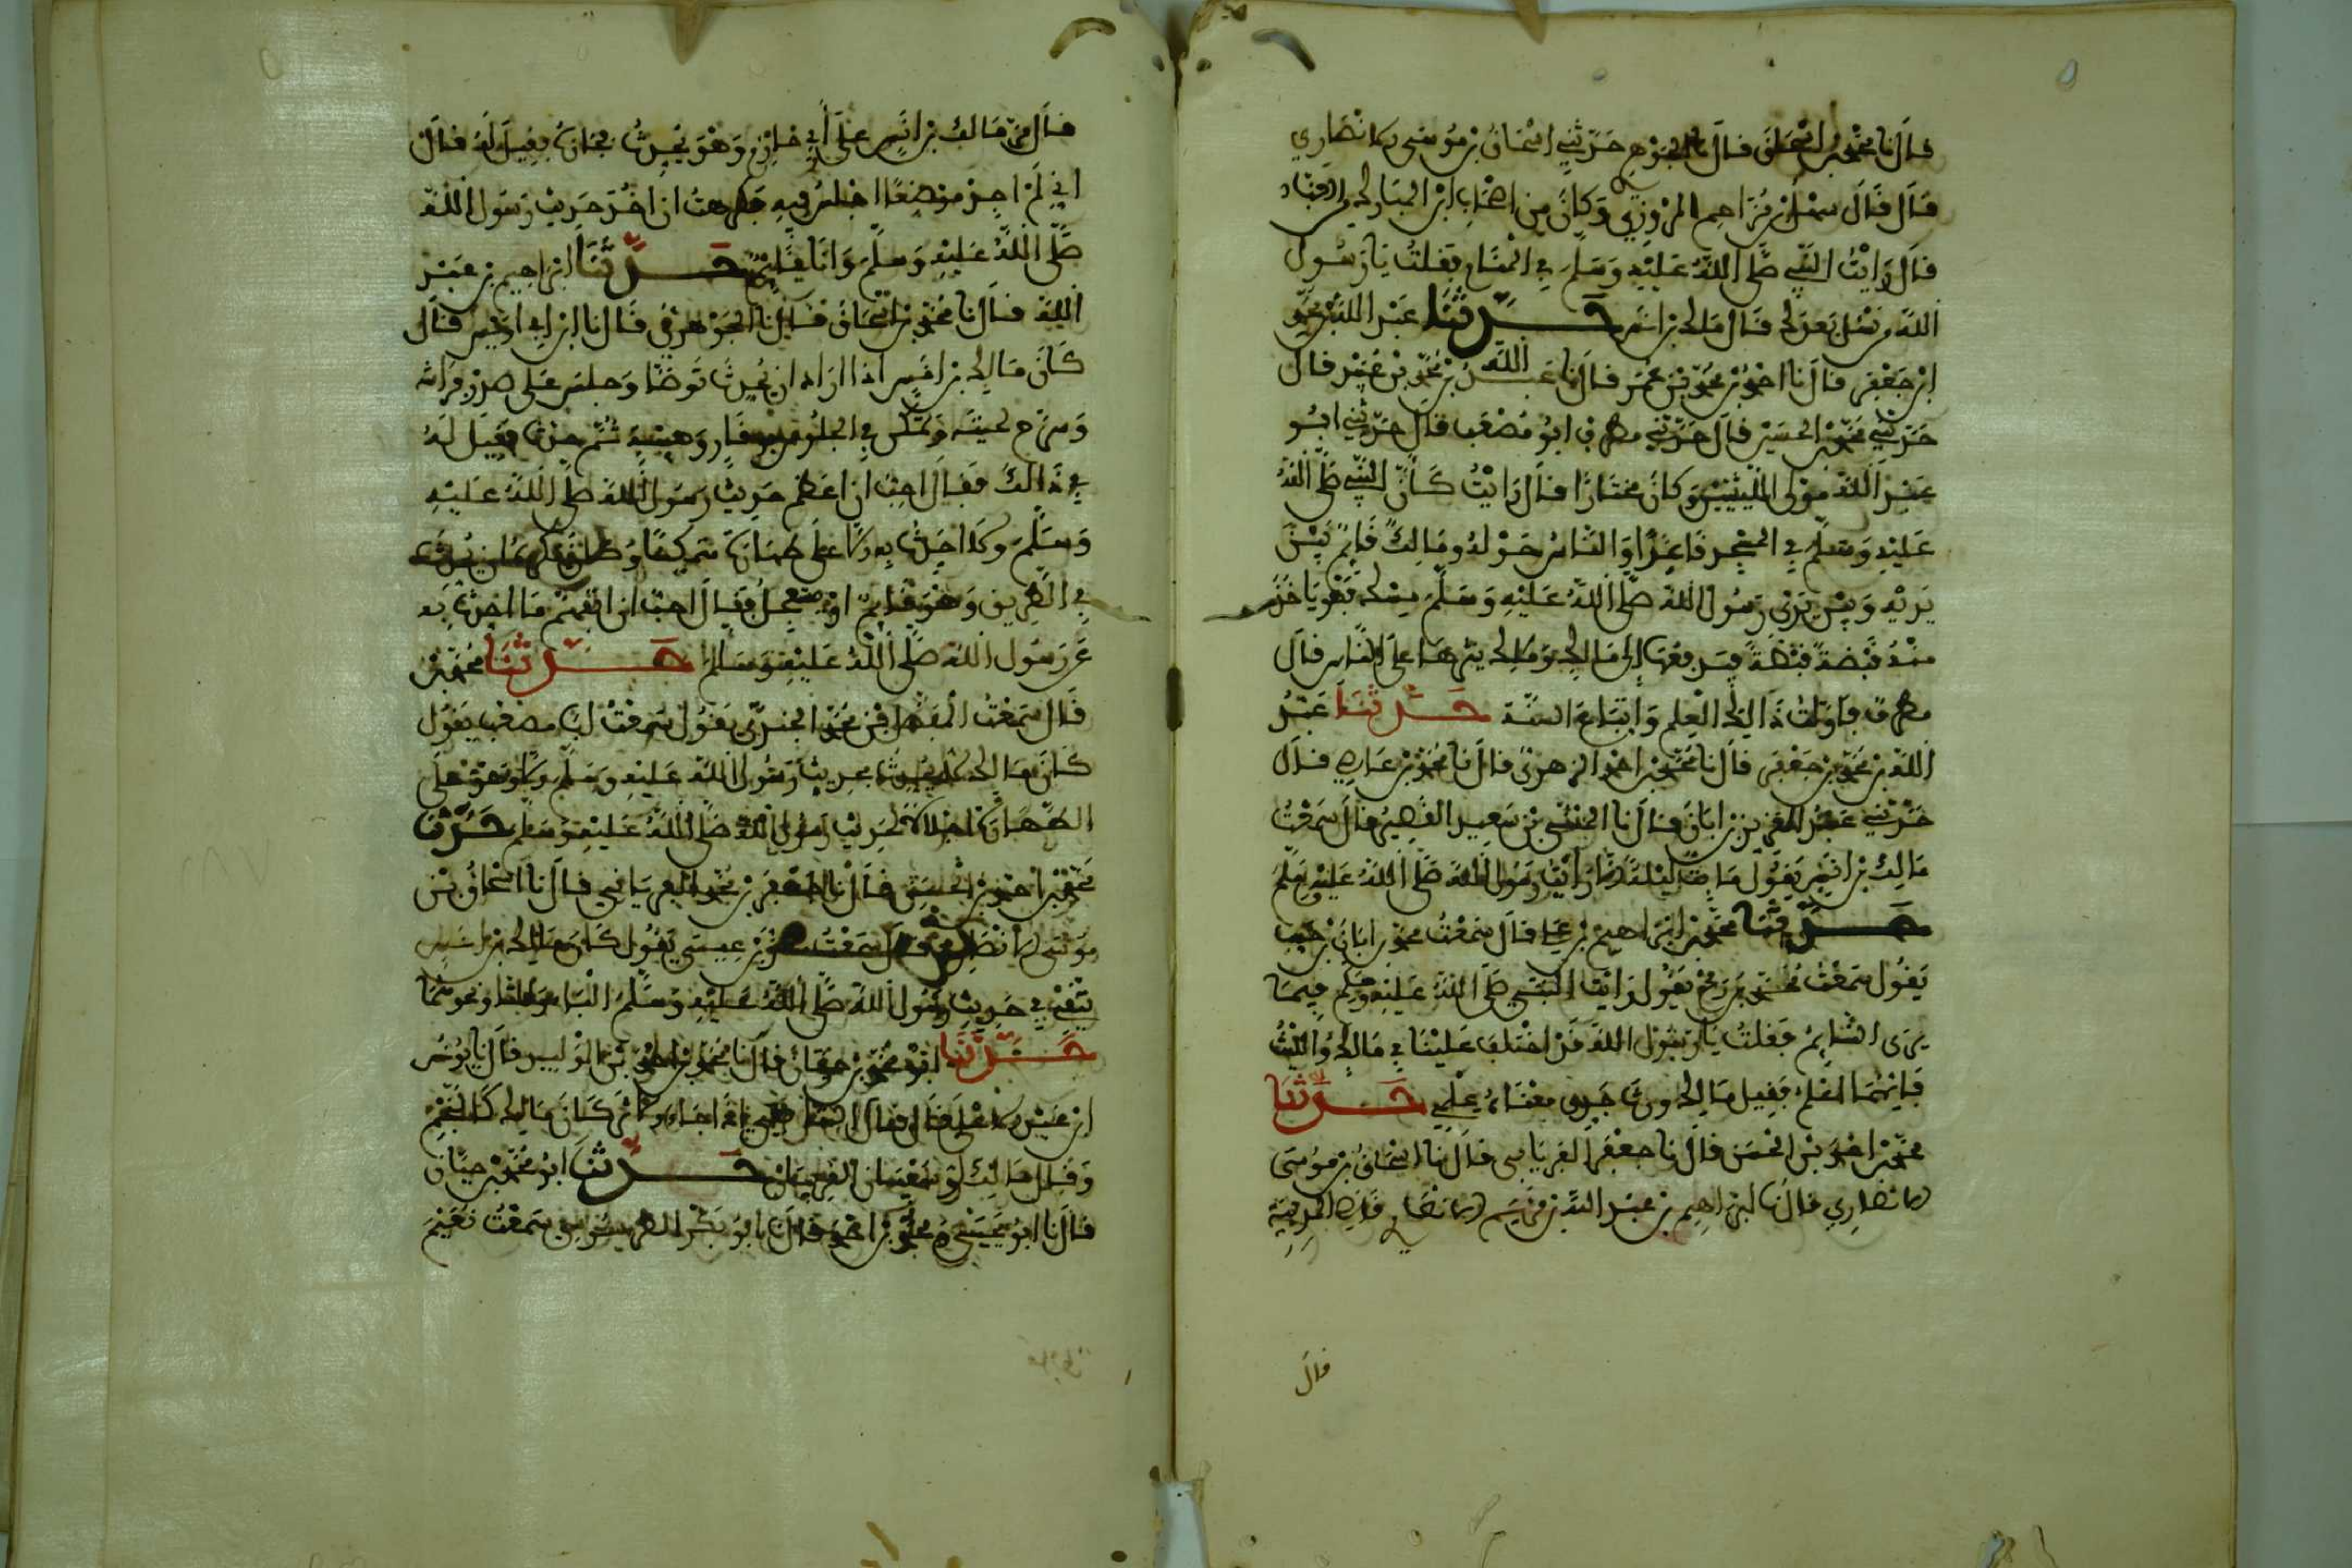 قال نا محمد بن اسحاق قال نا الجوهري حدثني اسحاق بن موسى الانصاري
قال قال سهل بن مزاحم المروزي وكان من اصحاب ابن المبارك العباد
قال رايت النبي صلى الله عليه وسلم في المنام فقلت يا رسول
الله من نسل بعدك قال مالك بن انس حدثنا عبد الله بن محمد
ابن جعفر قال نا احمد بن محمد بن عمر قال نا عبد الله بن محمد بن عبيد قال
حدثني محمد بن الحسين قال حدثني مطرف ابو مصعب قال حدثني ابو
عبد الله مولى الليثيين وكان مختارا قال رايت كان النبي صلى الله
عليه وسلم في المسجد قاعدا والناس حوله ومالك قايم بين
يديه وبين يدي رسول الله صلى الله عليه وسلم مسك فهو ياخذ
منه قبضة قبضة فيدفعها الى مالك ومالك ينثرها على الناس قال
مطرف فاولت ذالك العلم واتباع السنة حدثنا عبد
الله بن محمد بن جعفر قال نا محمد بن احمد الزهري قال نا محمد بن عاصم قال
حدثني عبد العزيز بن ابان قال نا المثنى بن سعيد القصير قال سمعت
مالك بن انس يقول ما بت ليلة الا رايت رسول الله صلى الله عليه وسلم
حدثنا محمد بن ابراهيم بن علي قال سمعت محمد بن ابان بن حبيب
يقول سمعت محمد بن رمح يقول رايت النبي صلى الله عليه وسلم فيما
يرى النايم فقلت يا رسول الله قد اختلف علينا في مالك والليث
فايهما اعلم فقيل مالك ورث جدي معناه علمي حدثنا
محمد بن احمد بن الحسن قال نا جعفر الفريابي قال نا اسحاق بن موسى
الانصاري قال نا ابراهيم بن عبد الله بن قريم الانصاري قاضي المدينة
قال
قال مر مالك بن انس على ابي حازم وهو يحدث فجازه فقيل له قال
اني لم اجد موضعا اجلس فيه فكرهت ان اخذ حديث رسول الله
صلى الله عليه وسلم وانا قايم حدثنا ابراهيم بن عبد
الله قال نا محمد بن اسحاق قال نا الجوهري قال نا ابن ابي اويس قال
كان مالك بن انس اذا اراد ان يحدث توضا وجلس على صدر فراشه
وسرح لحيته وتمكن في الجلوس بوقار وهيبة ثم حدث فقيل له
في ذالك فقال احب ان اعظم حديث رسول الله صلى الله عليه
وسلم ولا احدث به الا على طهارة متمكنا وكان يكره ان يحدث
في الطريق وهو قايم او مستعجل فقال احب ان اتفهم ما احدث به
عن رسول الله صلى الله عليه وسلم حدثنا محمد بن
قال سمعت المفضل بن محمد الجندي يقول سمعت ابا مصعب يقول
كان مالك لا يحدث بحديث رسول الله عليه وسلم الا وهو على
الطهارة اجلالا لحديث رسول الله صلى الله عليه وسلم حدثنا
محمد بن احمد بن الحسن قال نا جعفر بن محمد الفريابي قال نا اسحاق بن
موسى الانصاري قال سمعت معن بن عيسى يقول كان مالك بن انس
يتقي في حديث رسول الله صلى الله عليه وسلم الباء والتاء ونحوهما
حدثنا ابو محمد بن حيان قال نا محمد بن احمد بن الوليد قال نا يونس
ابن عبد الاعلى قال قال الشافعي اذا جاء الاثر كان مالك كالنجم
وقال مالك وسفيان القرينان حدثنا ابو محمد بن حيان
قال نا ابو يحيى محمد بن احمد قال نا ابو بكر الطرسوسي سمعت نعيم